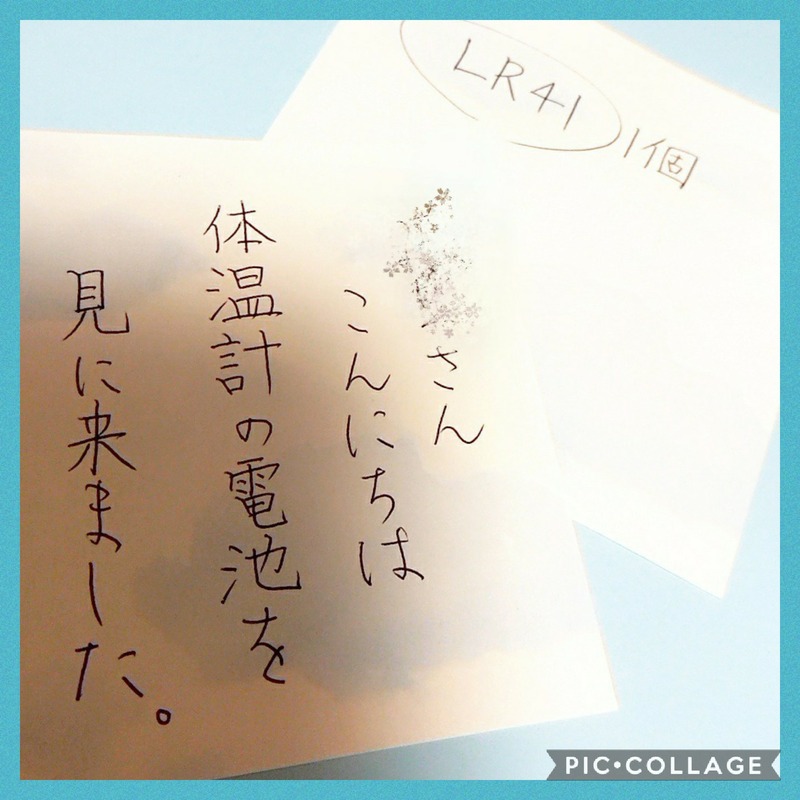 LR41 1個
さん
こんにちは
体温計の電池を
見に来ました。
PIC•COLLAGE